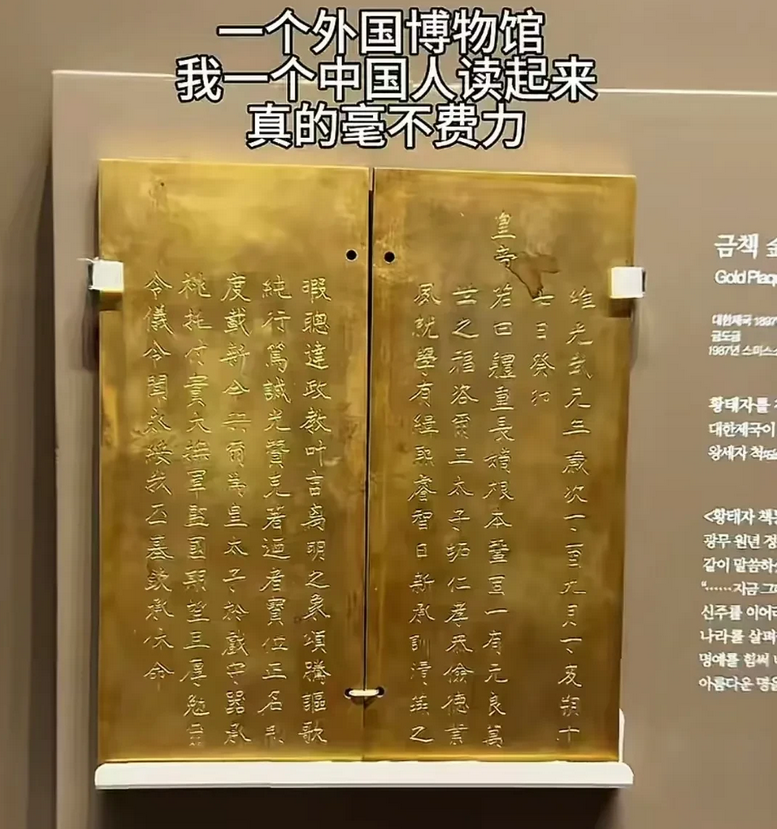 一个外国博物馆
我一个中国人读起来
真的毫不费力
維光武元年歲次丁酉九月丁亥朔十
七日癸卯
皇帝若曰體重長嫡根本繫焉一有元良萬
世之福咨爾王太子坧仁孝恭儉德業
夙就學有緝熙睿智日新承訓清燕之
暇聰達政教叶言离明之象頌騰謳歌
純行篤誠光贊克著迺者寶位正名制
度載新今冊爾爲皇太子於戲守器承
祧托付實大撫軍監國期望厚勉
令儀令聞永綏我丕基欽承休命
금책
Gold Plaq
대한제국 1897
금도금
1987년 스미스소
황태자를
대한제국이
왕세자 척
<황태자 책
광무 원년 정
같이 말씀하
“……지금 그
신주를 이어
나라를 살펴
명예를 힘써
아름다운 명을